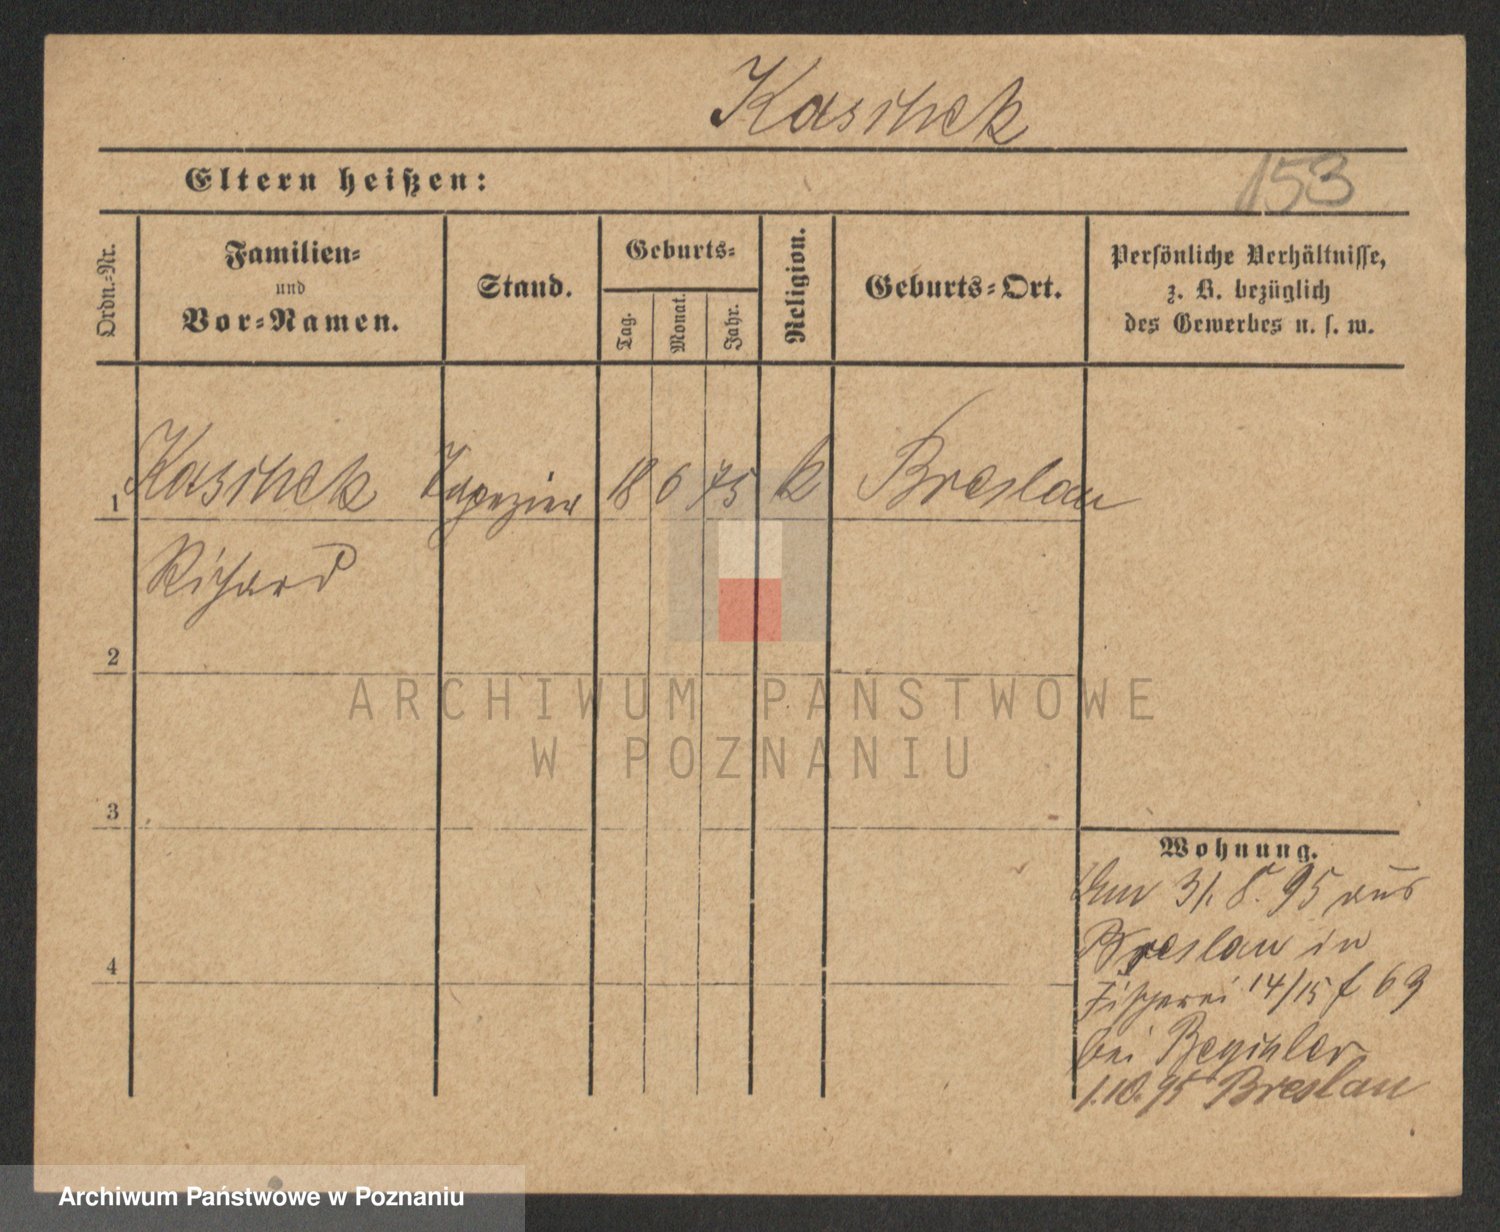 Kaschek
Eltern heißen:
153
Ordn.-Nr.
Familien-
und
Vor-Namen.
Stand.
Geburts-
Tag.
Monat.
Jahr.
Religion.
Geburts-Ort.
Persönliche Verhältnisse,
z. B. bezüglich
des Gewerbes u. s. w.
1 Kaschek Tapezier 18 6 75 k Breslau
Richard
2
3
4
Wohnung.
31. 8. 95 aus
Breslau in
Fischerei 14/15 f 69
bei
1.10.95 Breslau
ARCHIWUM PAŃSTWOWE
W POZNANIU
Archiwum Państwowe w Poznaniu